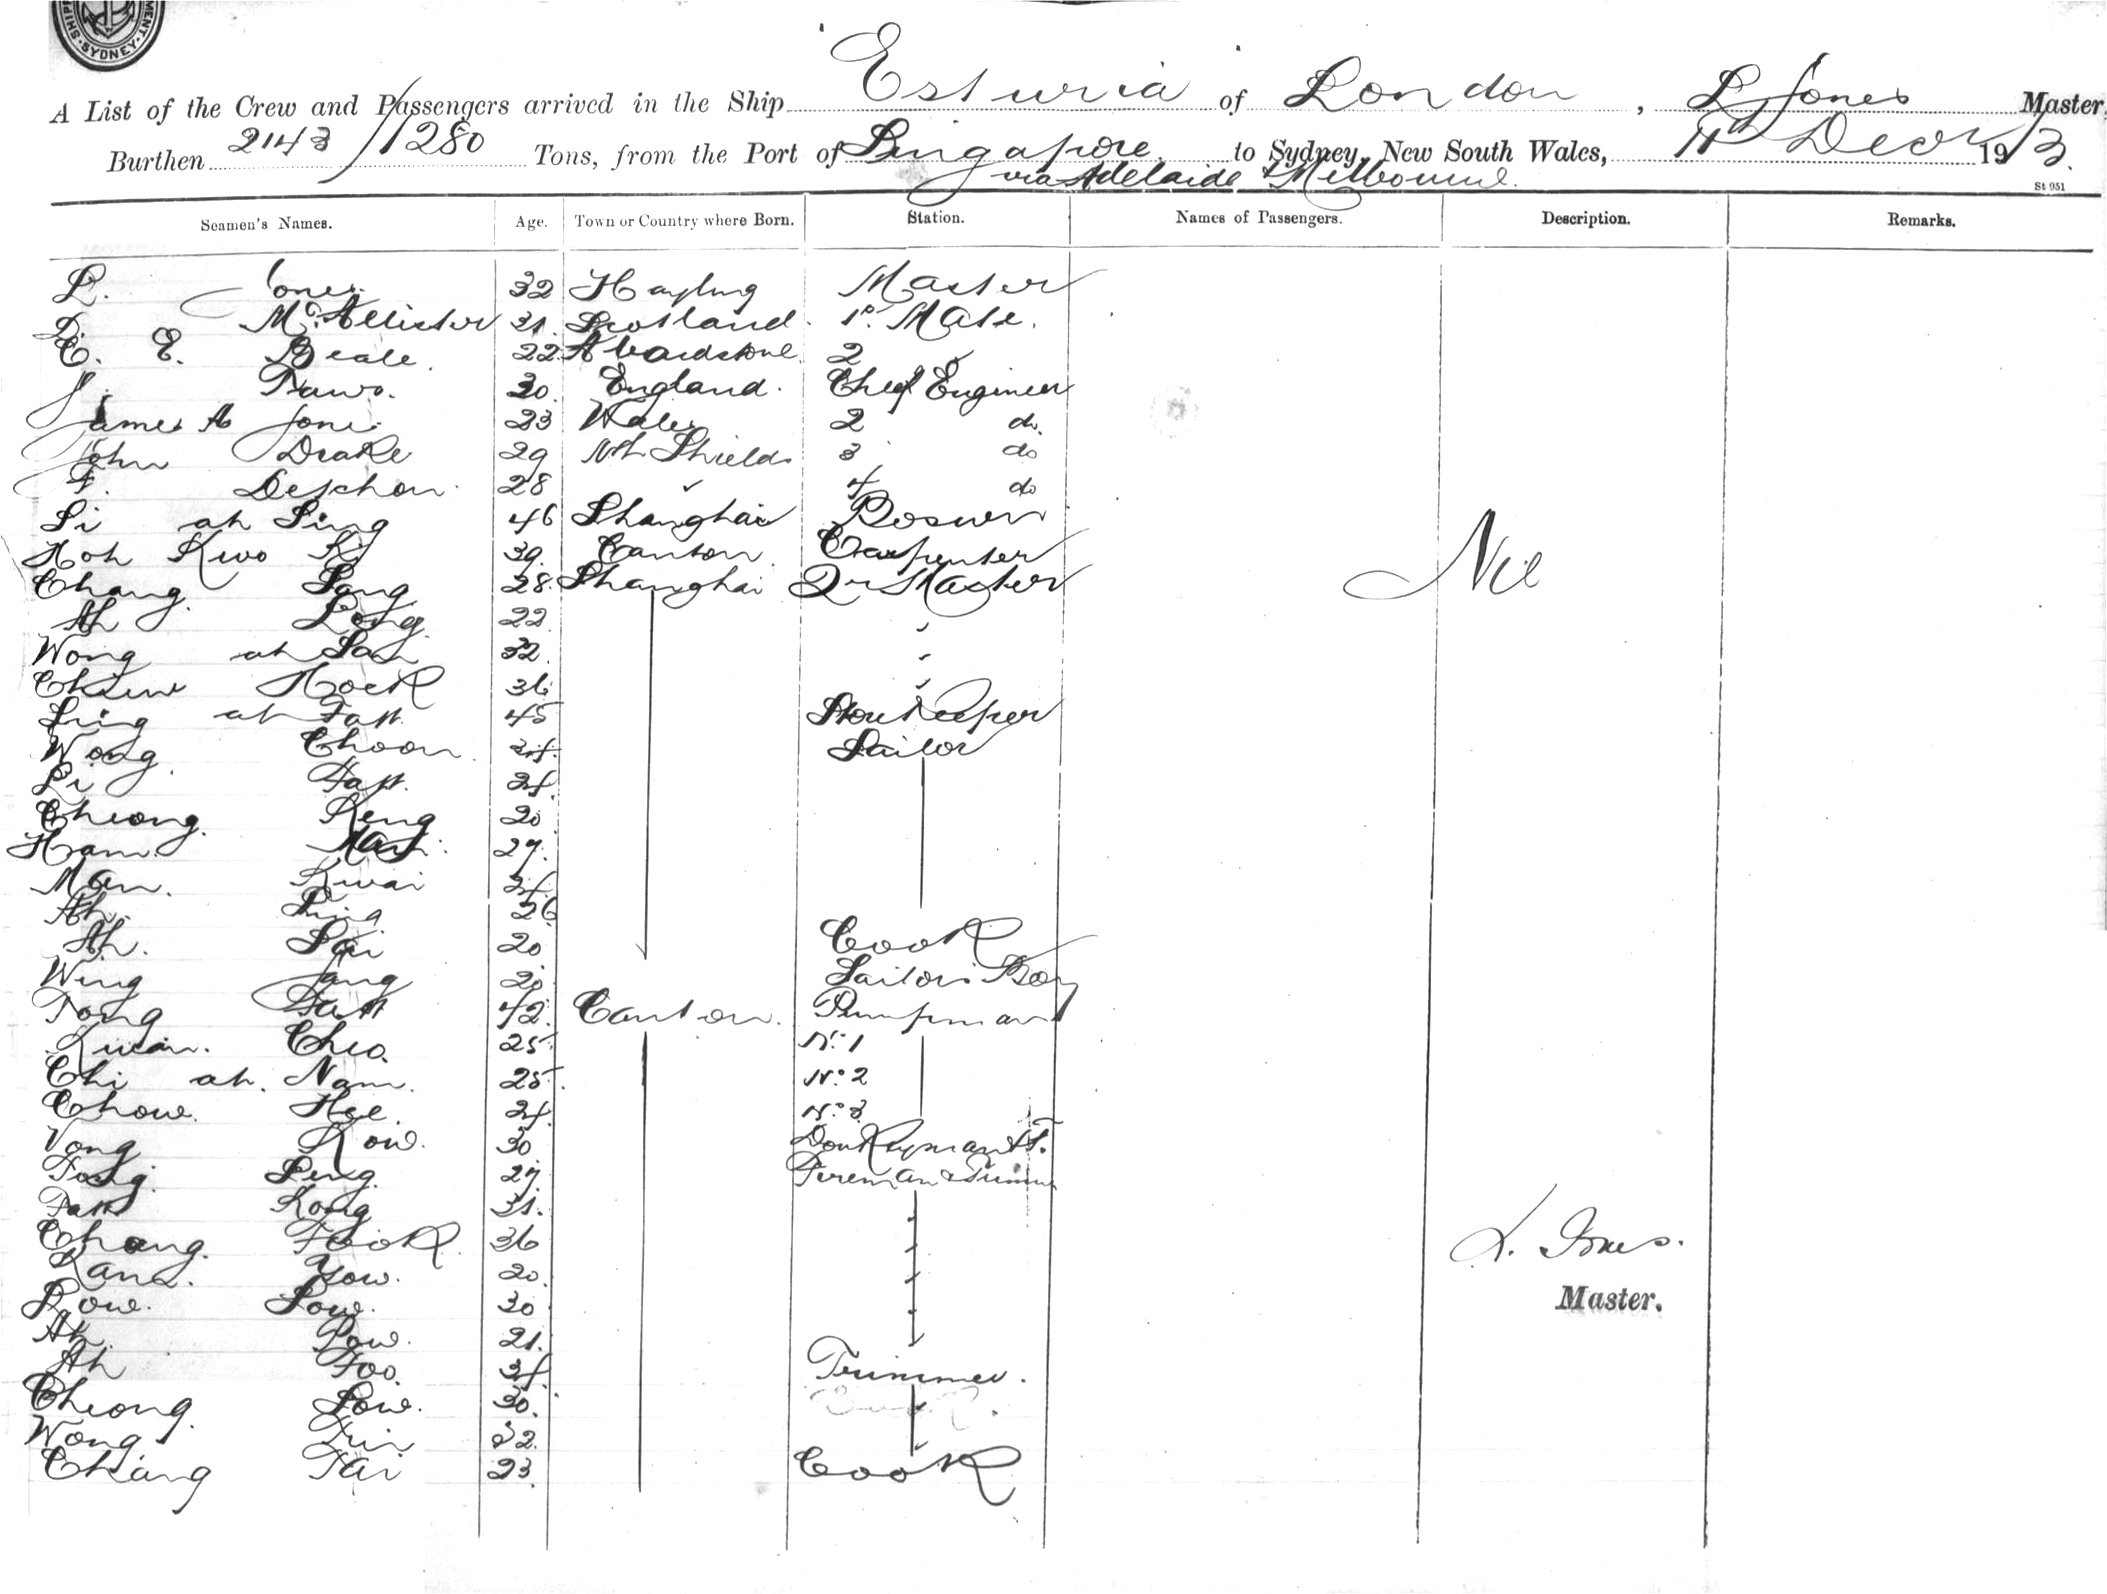 SYDNEY
A List of the Crew and Passengers arrived in the Ship Esturia of London, L Jones Master,
Burthen 2143/1280 Tons, from the Port of Singapore to Sydney, New South Wales, 11th Decr 1913.
via Adelaide & Melbourne.
St 951
Seamen's Names. Age. Town or Country where Born. Station. Names of Passengers. Description. Remarks.
L. Jones. 32 Hayling Master
D. McAllister 31. Scotland. 1o. Mate.
C. E. Beale. 22 2
J. 30. England. Chief Engineer
James A Jones 23 Wales 2 do.
John Drake 29 Nth Shields 3 do
F. Deschon. 28 4 do
Li ah Sing 46 Shanghai Boswn
Hoh Kwo Ky 39. Canton. Carpenter
Nil
Chang. Sang 28. Shanghai Qr Master
Ah Long. 22
Wong ah San 32.
Hock 36
Ling ah Fatt 45 Storekeeper
Wong. Choon 34. Sailor
Li Fatt. 24.
Cheong. Keng 20
Ham. 27.
Man. Kwai
Ah. 26
Ah. Sai 20 Cook
Wing Jang 20 Sailors Boy
Tong Fatt 42. Canton. Pumpman
Kwan. Cheo. 25. No. 1
Chi ah. Nam. 25. No. 2
Chow. Hee. 24. No. 3
Vong Kow. 30 Donkeyman
Tong. Seng. 27. Fireman & Trimmer
Fatt Kong 31.
Chang. Fook. 36
L. Jones.
Kang. Yow. 20.
Low. Low. 30
Master.
Ah Pow. 21.
Ah Foo. 34. Trimmer.
Cheong. Low. 30.
Wong 32.
Chang Tai 23. Cook